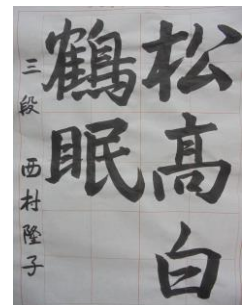 松高白
鶴眠
三段 西村隆子